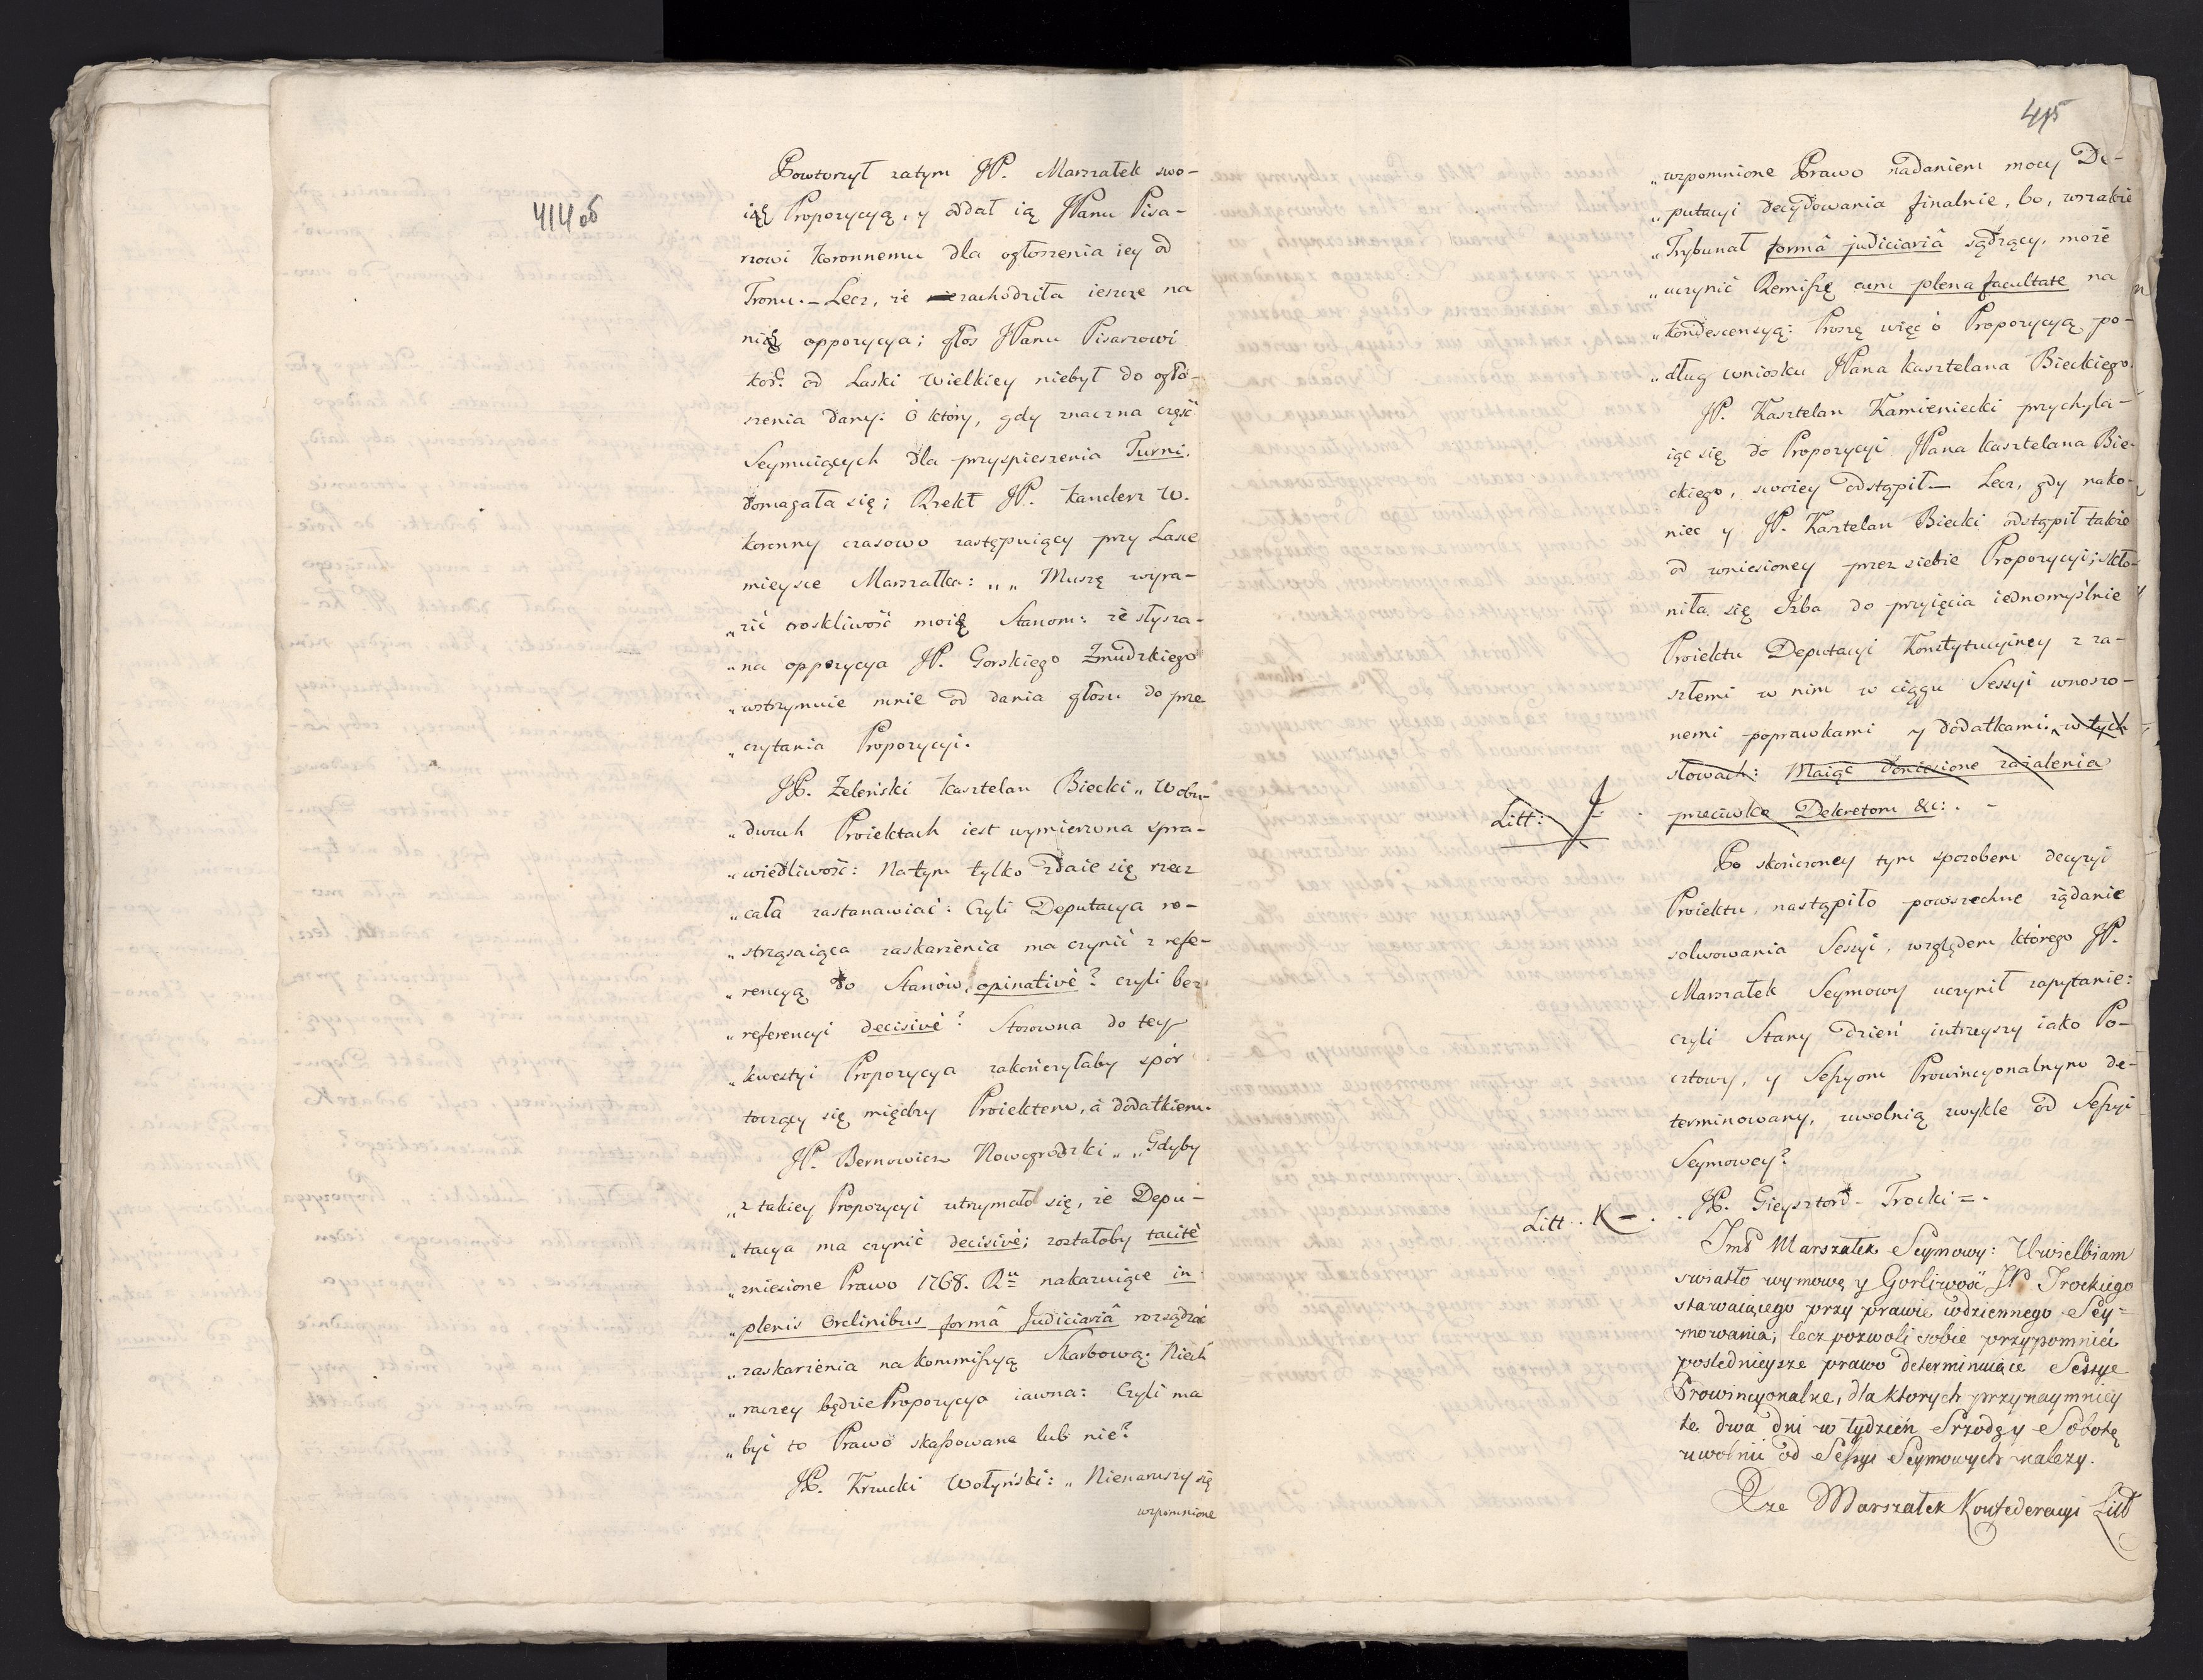 414 об
Powtorzył zatym JP. Marszałek swo-
ią Propozycyą, y oddał ią JPanu Pisa-
rzowi Koronnemu dla ogłoszenia iey od
Tronu. – Lecz, że zachodziła ieszcze na
nią oppozycya; głos JPanu Pisarzowi
Kor: od Laski Wielkiey niebył do ogło-
szenia dany: O który, gdy znaczna część
Seymuiących dla przyspieszenia Turni,
domagała się; Rzekł JP. Kanclerz W.
Koronny czasowo zastępuiący przy Lasce
mieysce Marszałka: „ „ Muszę wyra-
„zić troskliwość moią Stanom: że słysza-
„na oppozycya JP. Gorskiego Żmudzkiego
„wstrzymuie mnie od dania głosu do prze
„czytania Propozycyi.
JP. Żeleński Kasztelan Biecki „ W obu-
„dwuch Proiektach iest wymierzona spra-
„wiedliwość: Na tym tylko zdaie się rzecz
„cała zastanawiać: Czyli Deputacya ro-
„strząsaiąca zaskarżenia ma czynić z refe-
„rencyą do Stanów, opinativè? czyli bez
„referencyi decisivè? Stosowna do tey
„kwestyi Propozycya zakończyłaby spór
toczący się między Proiektem, à dodatkiem.
JP. Bernowicz Nowogrodzki „ „ Gdyby
„z takiey Propozycyi utrzymało się, że Depu-
„tacya ma czynić decisivè; zostałoby tacitè
„zniesione Prawo 1768. Ru nakazuiące in
„plenis Ordinibus formâ Judiciariâ rozsądzać
„zaskarżenia na Kommissyą Skarbową: Niech
„raczey będzie Propozycya iawna: Czyli ma
„być to Prawo skassowane lub nie?
JP. Krzucki Wołyński: „ Nienaruszy się
wzpomnione
415
„wzpomnione Prawo nadaniem mocy De-
„putacyi decydowania finalnie, bo, wszakże
„Trybunał formâ judiciariâ sądzący, może
„uczynić Remissę cum plena facultate na
„Kondescensyą: Proszę więc o Propozycyą po-
„dług wniosku JPana Kasztelana Bieckiego.
JP. Kasztelan Kamieniecki przychyla-
iąc się do Propozycyi JPana Kasztelana Bie-
ckiego, swoiey odstąpił – Lecz, gdy nako-
niec y JP. Kasztelan Biecki odstąpił także
od wniesioney przez siebie Propozycyi; skło-
niła się Izba do przyięcia iednomyślnie
Proiektu Deputacyi Konstytucyiney z za-
szłemi w nim w ciągu Sessyi wnoszo-
nemi poprawkami y dodatkami. w tych
słowach: Maiąc doniesione zażalenia
przeciwko Dekretom &c: . –
Litt: J
Po skończoney tym sposobem decyzyi
Proiektu, nastąpiło powszechne żądanie
solwowania Sessyi, względem którego JP.
Marszałek Seymowy uczynił zapytanie:
czyli Stany dzień iutrzeyszy iako Po-
cztowy, y Sessyom Prowincyonalnym de-
terminowany, uwolnią zwykle od Sessyi
Seymowey?
Litt. K – .
JP. Gieysztord – Trocki = .
Imć Marszałek Seymowy: Uwielbiam
swiatło wymowę y Gorliwość JP Trockiego
stawaiącego przy prawie codziennego Sey=
mowania; lecz pozwoli sobie przypomnieć
poslednieysze prawo determinuiące Sessye
Prowincyonalne, dla ktorych przynaymniey
te dwa dni w tydzień Srzodę y Sobotę
uwolnić od Sessyi Seymowych należy.
Xże Marszałek Konfederacyi Litt